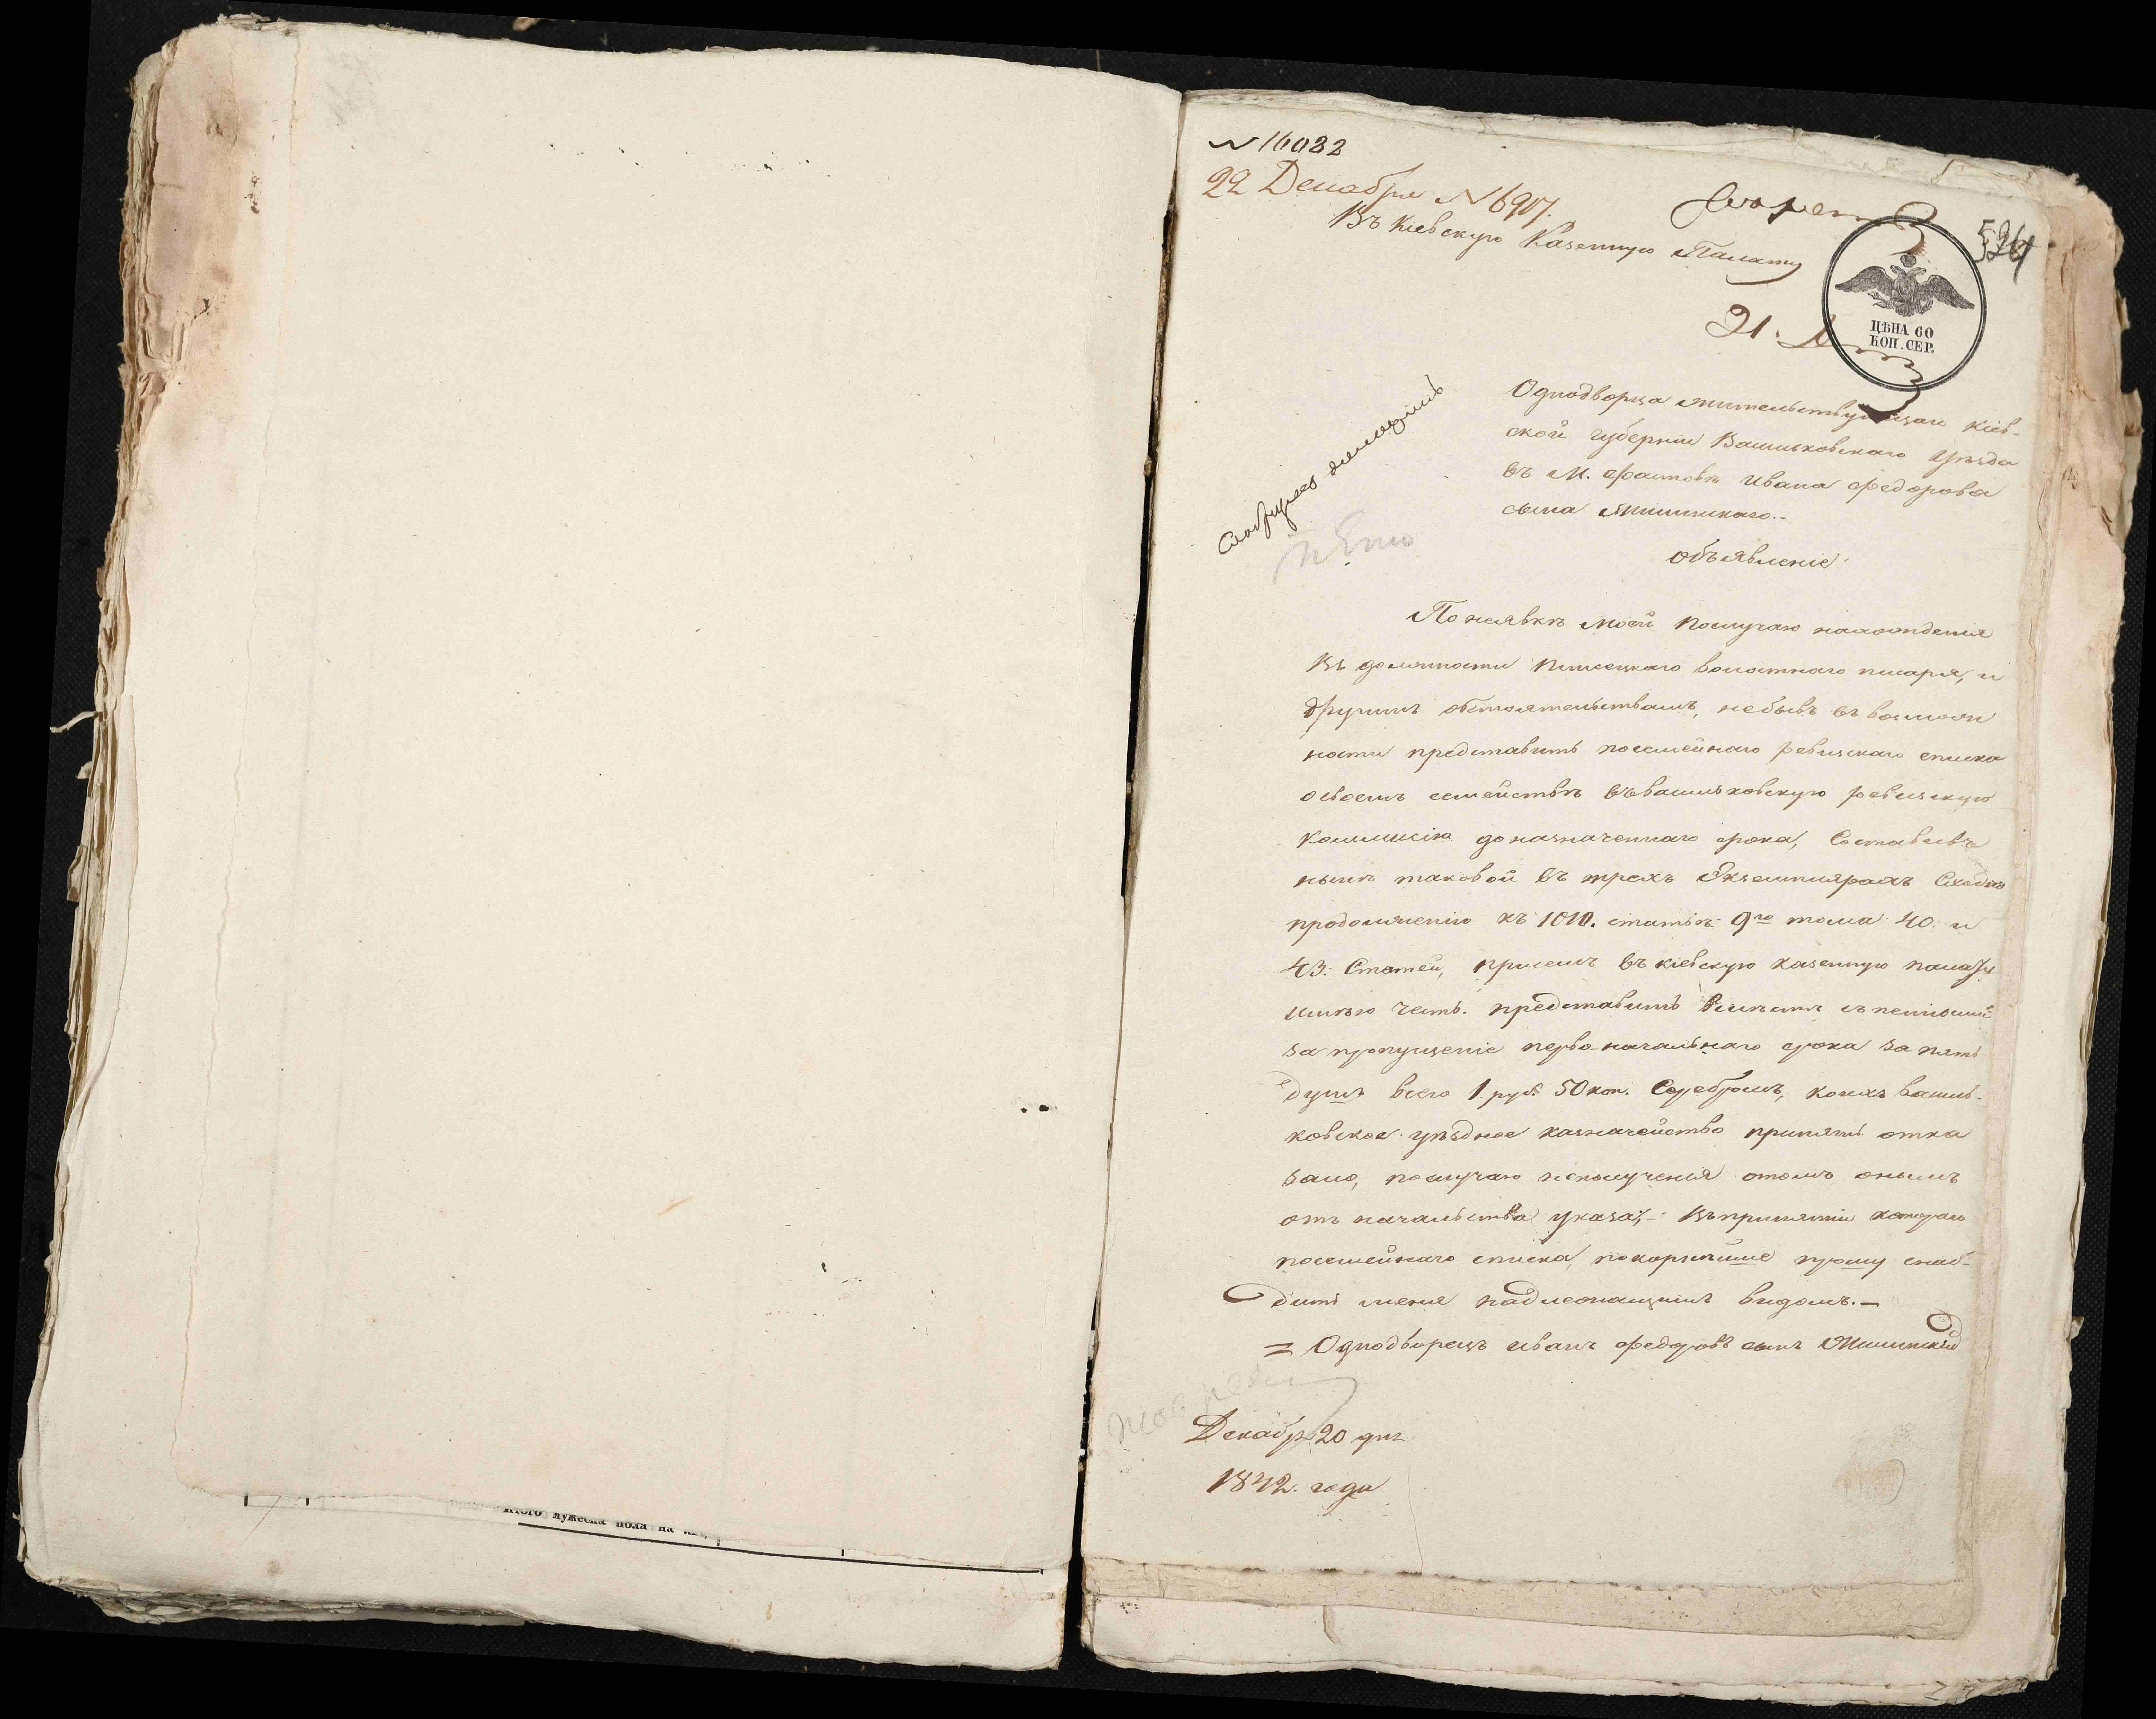 № 16082
22 Декабря № 6907.
Въ Кіевскую Казенную Палату
524
21.
ЦѢНА 60
КОП. СЕР.
Однодворца жительствующаго Кіев-
ской губерніи Васильковскаго уѣзда
въ М. Фастовѣ Ивана Федорова
сына
Объявленіе.
По неявкѣ моей послучаю нахожденія
въ должности волостнаго писаря, и
другимъ обстоятельствамъ, небывъ въ возможн
ности представить посемейнаго ревизскаго списка
освоемъ семействѣ въвасильковскую ревизскую
Коммисію доназначеннаго срока, Составивъ
нынѣ таковой въ трехъ Экземплярахъ Сходно
продолженію къ 1010. статьѣ 9го тома 40. и
43. Статей, при семъ въ кіевскую казенную палату
имѣю честь представить вмѣстѣ съ
за пропущеніе первоначальнаго срока за пять
душъ всего 1 руб. 50 коп. Серебромъ, коихъ василь-
ковское уѣздное казначейство принять отка
зало, послучаю неполученія отомъ онымъ
отъ начальства указа; Въ принятіи котораго
посемейнаго списка, покорнѣйше прошу снаб-
дить меня надлежащимъ видомъ.—
Однодворецъ иванъ федоровъ сынъ
Декабр 20 дня
1842. года
Итого мужеска пола на